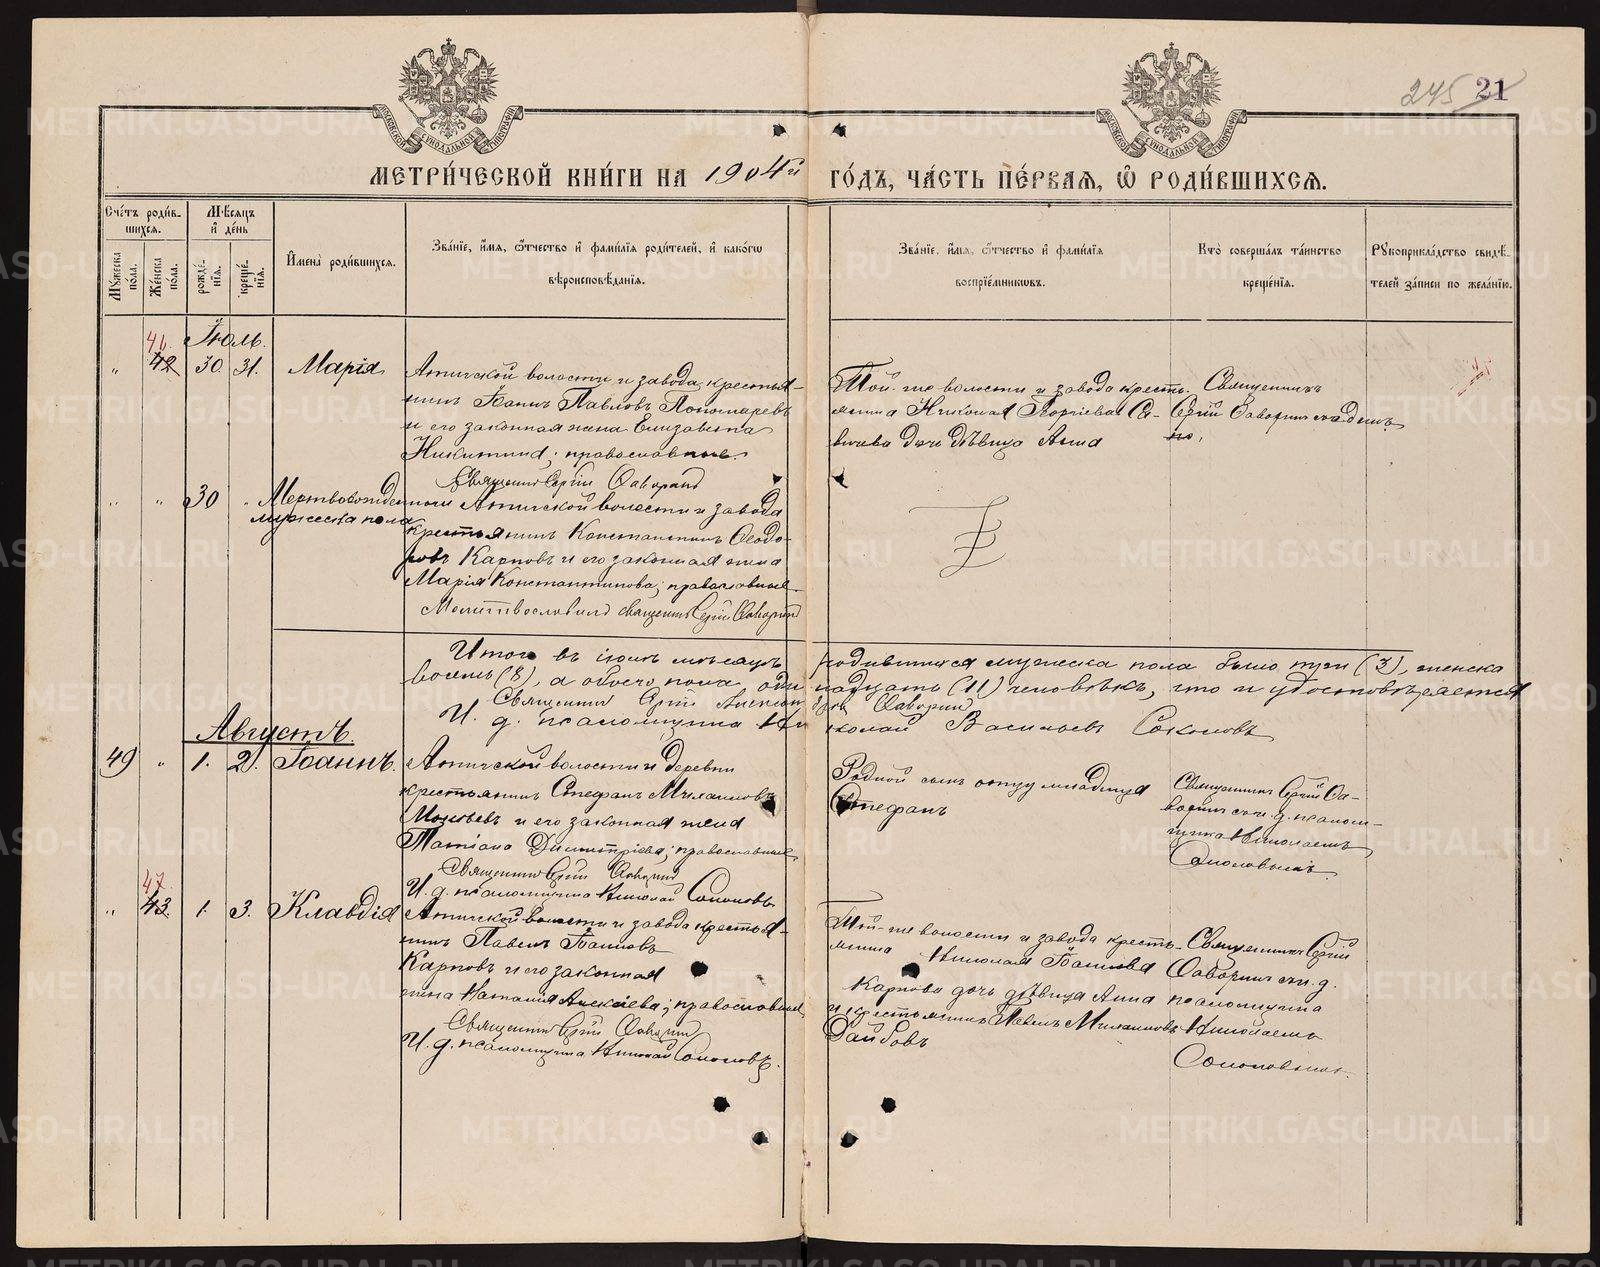 245 21
МЕТРИ́ЧЕСКОЙ КНИ́ГИ НА 1904й ГО́ДЪ, ЧА́СТЬ ПЕ́РВАѦ, Ѽ РОДИ́ВШИХСѦ.
Сче́тъ роди́в-
шихсѧ.
Мꙋжеска по́ла.
Же́нска по́ла.
Мѣсяцъ
и҆ де́нь
рожде́-
нїѧ.
креще́-
нїѧ.
И҆мена̀ роди́вшихсѧ.
Зва́нїе, и҆́мѧ, ѻ҆́тчество и҆ фами́лїѧ роди́телей, и҆ како́гѡ
вѣроисповѣ́данїѧ.
Зва́нїе, и҆́мѧ, ѻ҆́тчество и҆ фами́лїѧ
воспрїе́мникѡвъ.
Кто̀ соверша́лъ та́инство
креще́нїѧ.
Рꙋкоприкла́дство свидѣ́-
телей за́писи по жела́нїю.
Іюль.
46
„ 42 30. 31. Марія
Атигской волости и завода крестья-
нинъ Іоаннъ Павловъ Пономаревъ
и его законная жена Елизавета
Никитина; православные.
Священникъ Сергій Фаворинъ
Той-же волости и завода кресть-
янина Николая Георгіева Са-
вичева дочь дѣвица Анна
Священникъ
Сергій Фаворинъ
„ „ 30 „ Мертворожденный
мужеска пола
Атигской волости и завода
крестьянинъ Константинъ Ѳеодо-
ровъ Карповъ и его законная жена
Марія Константинова; православные.
Молитвословилъ священникъ Сергій Фаворинъ
Итого въ іюлѣ мѣсяцѣ родившихся мужеска пола было три (3), женска
восемь (8), а обоего пола одиннадцать (11) человѣкъ, что и удостовѣряется
Священникъ Сергій Александровъ Фаворинъ
И. д. псаломщика Николай Васильевъ Соколовъ
Августъ.
49 „ 1. 2. Іоаннъ.
Атигской волости и деревни
крестьянинъ Стефанъ Михаиловъ
и его законная жена
Татіана Димитріева; православные
Священникъ Сергій Фаворинъ
И. д. псаломщика Николай Соколовъ
Родной сынъ отцу младенца
Стефанъ
Священникъ Сергій Фа-
воринъ съ и. д. псалом-
щика Николаемъ
Соколовымъ
47
„ 43. 1. 3. Клавдія
Атигской волости и завода крестья-
нинъ Павелъ Іоанновъ
Карповъ и его законная
жена Наталія Алексіева; православные
Священникъ Сергій Фаворинъ
И. д. псаломщика Николай Соколовъ.
Той-же волости и завода кресть-
янина Николая Іоаннова
Карпова дочь дѣвица Анна
и крестьянинъ Павелъ Михаиловъ
Священникъ Сергій
Фаворинъ съ и. д.
псаломщика
Николаемъ
Соколовымъ.
METRIKI.GASO-URAL.RU